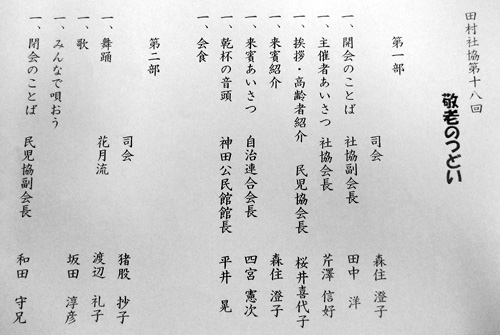 田村社協第十八回
敬老のつどい
第一部
司会 森住 澄子
一、開会のことば 社協副会長 田中 洋
一、主催者あいさつ 社協会長 芹澤 信好
一、挨拶・高齢者紹介 民児協会長 桜井喜代子
一、来賓紹介 森住 澄子
一、来賓あいさつ 自治連合会長 四宮 憲次
一、乾杯の音頭 神田公民館館長 平井 晃
一、会食
第二部
司会 猪股 抄子
一、舞踊 花月流 渡辺 礼子
一、歌 坂田 淳彦
一、みんなで唄おう
一、閉会のことば 民児協副会長 和田 守兄